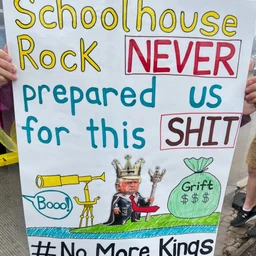 Schoolhouse
Rock NEVER
prepared us
for this SHIT
Booo!
Grift
$$$
# No More Kings